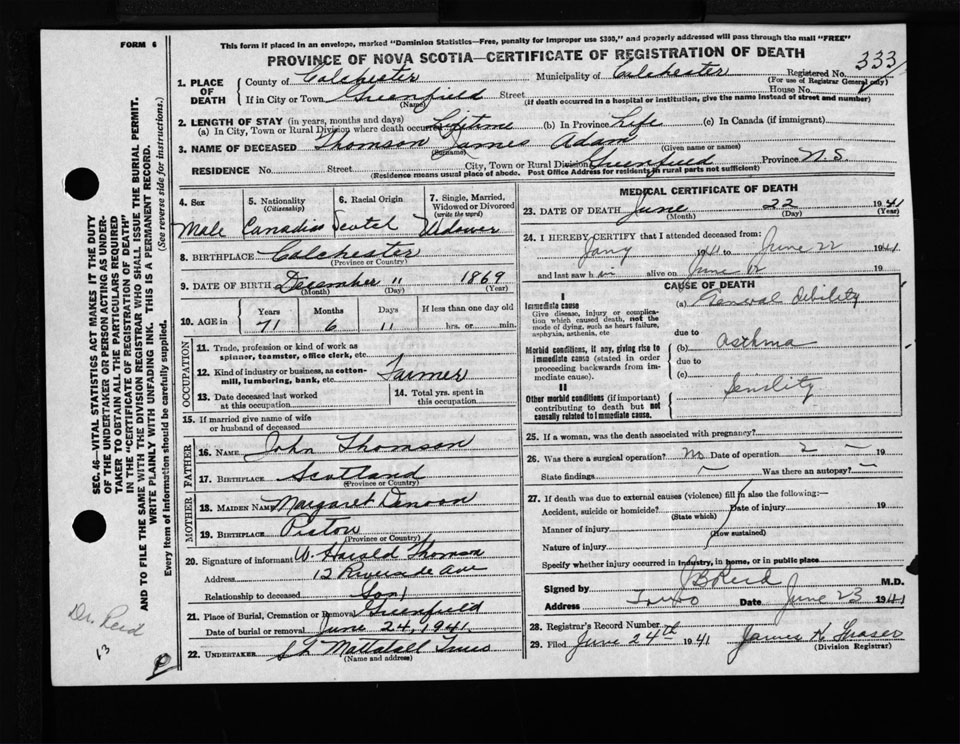 This form if placed in an envelope, marked "Dominion Statistics—Free, penalty for improper use $300," and properly addressed will pass through the mail "FREE"
FORM 6
PROVINCE OF NOVA SCOTIA—CERTIFICATE OF REGISTRATION OF DEATH
333
1. PLACE OF DEATH County of Colchester Municipality of Colchester Registered No.
(For use of Registrar General only)
If in City or Town Greenfield Street House No.
(Name) (If death occurred in a hospital or institution, give the name instead of street and number)
2. LENGTH OF STAY (in years, months and days)
(a) In City, Town or Rural Division where death occurred Lifetime (b) In Province Life (c) In Canada (if immigrant)
3. NAME OF DECEASED Thomson James Adam
(Surname) (Given name or names)
RESIDENCE No. Street City, Town or Rural Division Greenfield Province N.S.
(Residence means usual place of abode. Post Office Address for residents in rural parts not sufficient)
4. Sex
Male
5. Nationality (Citizenship)
Canadian
6. Racial Origin
Scotch
7. Single, Married, Widowed or Divorced (write the word)
Widower
8. BIRTHPLACE Colchester
(Province or Country)
9. DATE OF BIRTH December 11 1869
(Month) (Day) (Year)
10. AGE in Years Months Days If less than one day old
71 6 11 hrs. or min.
OCCUPATION
11. Trade, profession or kind of work as spinner, teamster, office clerk, etc.
12. Kind of industry or business, as cotton-mill, lumbering, bank, etc. Farmer
13. Date deceased last worked at this occupation
14. Total yrs. spent in this occupation
15. If married give name of wife or husband of deceased
FATHER
16. NAME John Thomson
17. BIRTHPLACE Scotland
(Province or Country)
MOTHER
18. MAIDEN NAME Margaret
19. BIRTHPLACE Pictou
(Province or Country)
20. Signature of informant W. Harold Thomson
Address 12 Riverside Ave
Relationship to deceased Son
21. Place of Burial, Cremation or Removal Greenfield
Date of burial or removal June 24, 1941
22. UNDERTAKER Mattatall Truro
(Name and address)
MEDICAL CERTIFICATE OF DEATH
23. DATE OF DEATH June 22 1941
(Month) (Day) (Year)
24. I HEREBY CERTIFY that I attended deceased from:
Jany 1941 to June 22 1941
and last saw him alive on June 12 19
CAUSE OF DEATH
I
Immediate cause
Give disease, injury or complication which caused death, not the mode of dying, such as heart failure, asphyxia, asthenia, etc
(a) General debility
due to
Morbid conditions, if any, giving rise to immediate cause (stated in order proceeding backwards from immediate cause).
(b) Asthma
due to
(c)
II
Other morbid conditions (if important) contributing to death but not causally related to immediate cause.
Senility
25. If a woman, was the death associated with pregnancy?
26. Was there a surgical operation? No Date of operation 19
State findings Was there an autopsy?
27. If death was due to external causes (violence) fill in also the following:—
Accident, suicide or homicide? Date of injury 19
(State which)
Manner of injury
(How sustained)
Nature of injury
Specify whether injury occurred in industry, in home, or in public place
Signed by J B Reid M.D.
Address Truro Date June 23 1941
28. Registrar's Record Number
29. Filed June 24th 1941 James K Fraser
(Division Registrar)
SEC. 46—VITAL STATISTICS ACT MAKES IT THE DUTY OF THE UNDERTAKER OR PERSON ACTING AS UNDERTAKER TO OBTAIN ALL THE PARTICULARS REQUIRED IN THE "CERTIFICATE OF REGISTRATION OF DEATH" AND TO FILE THE SAME WITH THE DIVISION REGISTRAR WHO SHALL ISSUE THE BURIAL PERMIT.
WRITE PLAINLY WITH UNFADING INK. THIS IS A PERMANENT RECORD.
Every item of information should be carefully supplied. (See reverse side for instructions.)
Dr. Reid
13